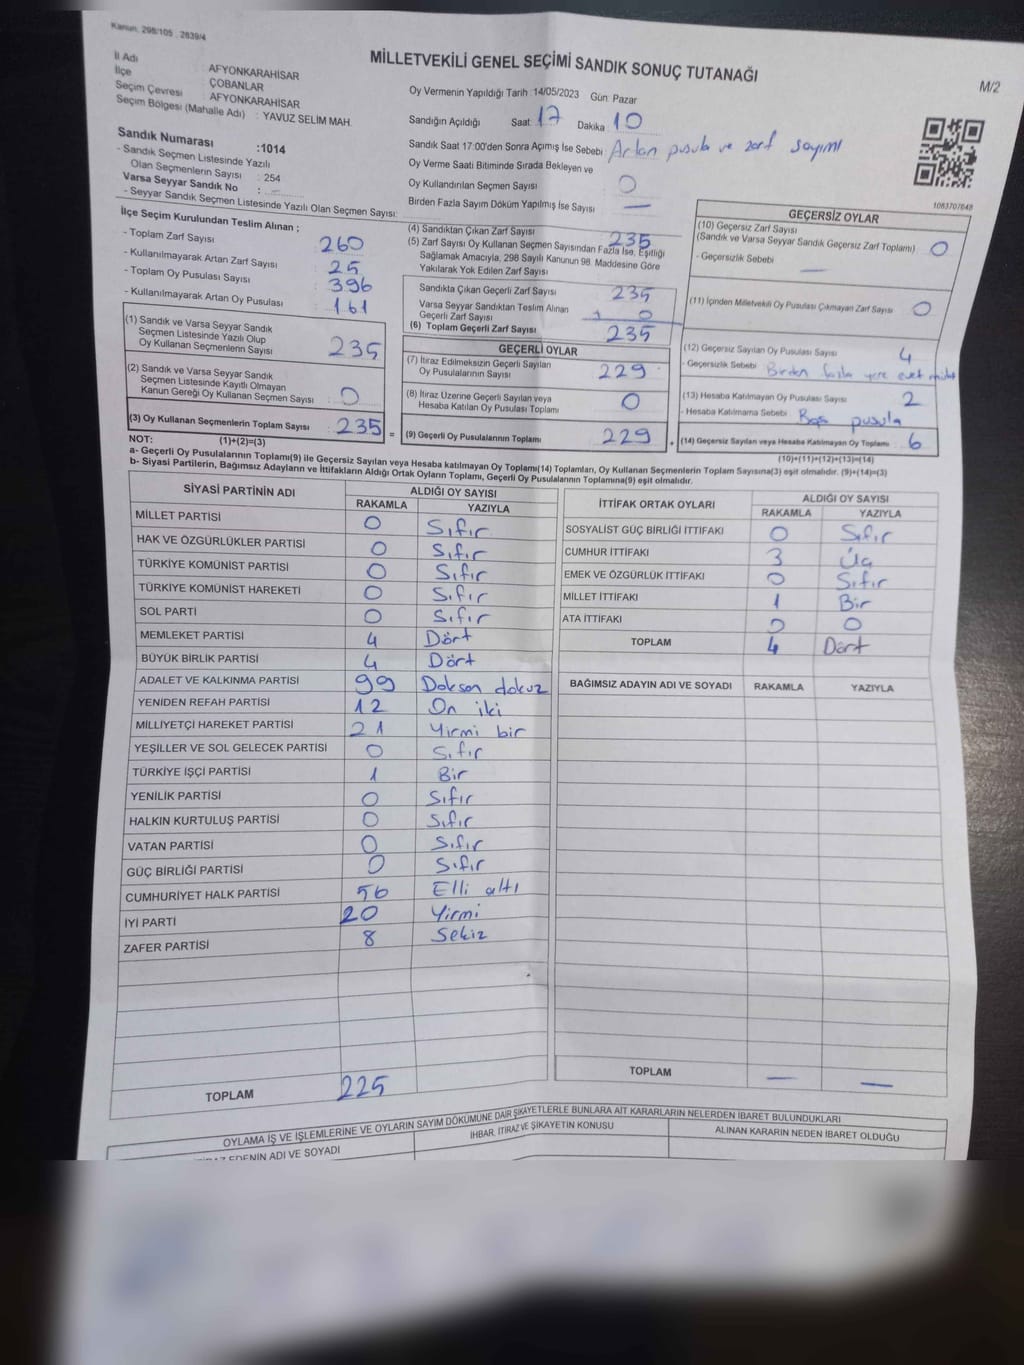 Kanun: 298/105 , 2839/4
MİLLETVEKİLİ GENEL SEÇİMİ SANDIK SONUÇ TUTANAĞI
M/2
İl Adı : AFYONKARAHİSAR
İlçe : ÇOBANLAR
Seçim Çevresi : AFYONKARAHİSAR
Seçim Bölgesi (Mahalle Adı) : YAVUZ SELİM MAH.
Sandık Numarası :1014
- Sandık Seçmen Listesinde Yazılı
Olan Seçmenlerin Sayısı : 254
Varsa Seyyar Sandık No : -
- Seyyar Sandık Seçmen Listesinde Yazılı Olan Seçmen Sayısı:
Oy Vermenin Yapıldığı Tarih :14/05/2023 Gün: Pazar
Sandığın Açıldığı Saat: 17 Dakika: 10
Sandık Saat 17:00'den Sonra Açımış İse Sebebi Artan pusula ve zarf sayımı
Oy Verme Saati Bitiminde Sırada Bekleyen ve
Oy Kullandırılan Seçmen Sayısı 0
Birden Fazla Sayım Döküm Yapılmış İse Sayısı —
1083707648
İlçe Seçim Kurulundan Teslim Alınan ;
- Toplam Zarf Sayısı 260
- Kullanılmayarak Artan Zarf Sayısı 25
- Toplam Oy Pusulası Sayısı 396
- Kullanılmayarak Artan Oy Pusulası 161
(1) Sandık ve Varsa Seyyar Sandık
Seçmen Listesinde Yazılı Olup
Oy Kullanan Seçmenlerin Sayısı 235
(2) Sandık ve Varsa Seyyar Sandık
Seçmen Listesinde Kayıtlı Olmayan
Kanun Gereği Oy Kullanan Seçmen Sayısı 0
(3) Oy Kullanan Seçmenlerin Toplam Sayısı 235 =
(4) Sandıktan Çıkan Zarf Sayısı 235
(5) Zarf Sayısı Oy Kullanan Seçmen Sayısından Fazla İse, Eşitliği
Sağlamak Amacıyla, 298 Sayılı Kanunun 98. Maddesine Göre
Yakılarak Yok Edilen Zarf Sayısı
Sandıkta Çıkan Geçerli Zarf Sayısı 235
Varsa Seyyar Sandıktan Teslim Alınan
Geçerli Zarf Sayısı + 0
(6) Toplam Geçerli Zarf Sayısı 235
GEÇERLİ OYLAR
(7) İtiraz Edilmeksizin Geçerli Sayılan
Oy Pusulalarının Sayısı 229
(8) İtiraz Üzerine Geçerli Sayılan veya
Hesaba Katılan Oy Pusulası Toplamı 0
(9) Geçerli Oy Pusulalarının Toplamı 229 +
GEÇERSİZ OYLAR
(10) Geçersiz Zarf Sayısı
(Sandık ve Varsa Seyyar Sandık Geçersiz Zarf Toplamı) 0
- Geçersizlik Sebebi —
(11) İçinden Milletvekili Oy Pusulası Çıkmayan Zarf Sayısı 0
(12) Geçersiz Sayılan Oy Pusulası Sayısı 4
- Geçersizlik Sebebi Birden fazla yere evet
(13) Hesaba Katılmayan Oy Pusulası Sayısı 2
- Hesaba Katılmama Sebebi Boş pusula
(14) Geçersiz Sayılan veya Hesaba Katılmayan Oy Toplamı 6
NOT: (1)+(2)=(3)
(10)+(11)+(12)+(13)=(14)
a- Geçerli Oy Pusulalarının Toplamı(9) ile Geçersiz Sayılan veya Hesaba katılmayan Oy Toplamı(14) Toplamları, Oy Kullanan Seçmenlerin Toplam Sayısına(3) eşit olmalıdır. (9)+(14)=(3)
b- Siyasi Partilerin, Bağımsız Adayların ve İttifakların Aldığı Ortak Oyların Toplamı, Geçerli Oy Pusulalarının Toplamına(9) eşit olmalıdır.
SİYASİ PARTİNİN ADI ALDIĞI OY SAYISI
RAKAMLA YAZIYLA
MİLLET PARTİSİ 0 Sıfır
HAK VE ÖZGÜRLÜKLER PARTİSİ 0 Sıfır
TÜRKİYE KOMÜNİST PARTİSİ 0 Sıfır
TÜRKİYE KOMÜNİST HAREKETİ 0 Sıfır
SOL PARTİ 0 Sıfır
MEMLEKET PARTİSİ 4 Dört
BÜYÜK BİRLİK PARTİSİ 4 Dört
ADALET VE KALKINMA PARTİSİ 99 Doksan dokuz
YENİDEN REFAH PARTİSİ 12 On iki
MİLLİYETÇİ HAREKET PARTİSİ 21 Yirmi bir
YEŞİLLER VE SOL GELECEK PARTİSİ 0 Sıfır
TÜRKİYE İŞÇİ PARTİSİ 1 Bir
YENİLİK PARTİSİ 0 Sıfır
HALKIN KURTULUŞ PARTİSİ 0 Sıfır
VATAN PARTİSİ 0 Sıfır
GÜÇ BİRLİĞİ PARTİSİ 0 Sıfır
CUMHURİYET HALK PARTİSİ 56 Elli altı
İYİ PARTİ 20 Yirmi
ZAFER PARTİSİ 8 Sekiz
TOPLAM 225
İTTİFAK ORTAK OYLARI ALDIĞI OY SAYISI
RAKAMLA YAZIYLA
SOSYALİST GÜÇ BİRLİĞİ İTTİFAKI 0 Sıfır
CUMHUR İTTİFAKI 3 Üç
EMEK VE ÖZGÜRLÜK İTTİFAKI 0 Sıfır
MİLLET İTTİFAKI 1 Bir
ATA İTTİFAKI 0 0
TOPLAM 4 Dört
BAĞIMSIZ ADAYIN ADI VE SOYADI RAKAMLA YAZIYLA
TOPLAM — —
OYLAMA İŞ VE İŞLEMLERİNE VE OYLARIN SAYIM DÖKÜMÜNE DAİR ŞİKAYETLERLE BUNLARA AİT KARARLARIN NELERDEN İBARET BULUNDUKLARI
EDENİN ADI VE SOYADI
İHBAR, İTİRAZ VE ŞİKAYETİN KONUSU
ALINAN KARARIN NEDEN İBARET OLDUĞU